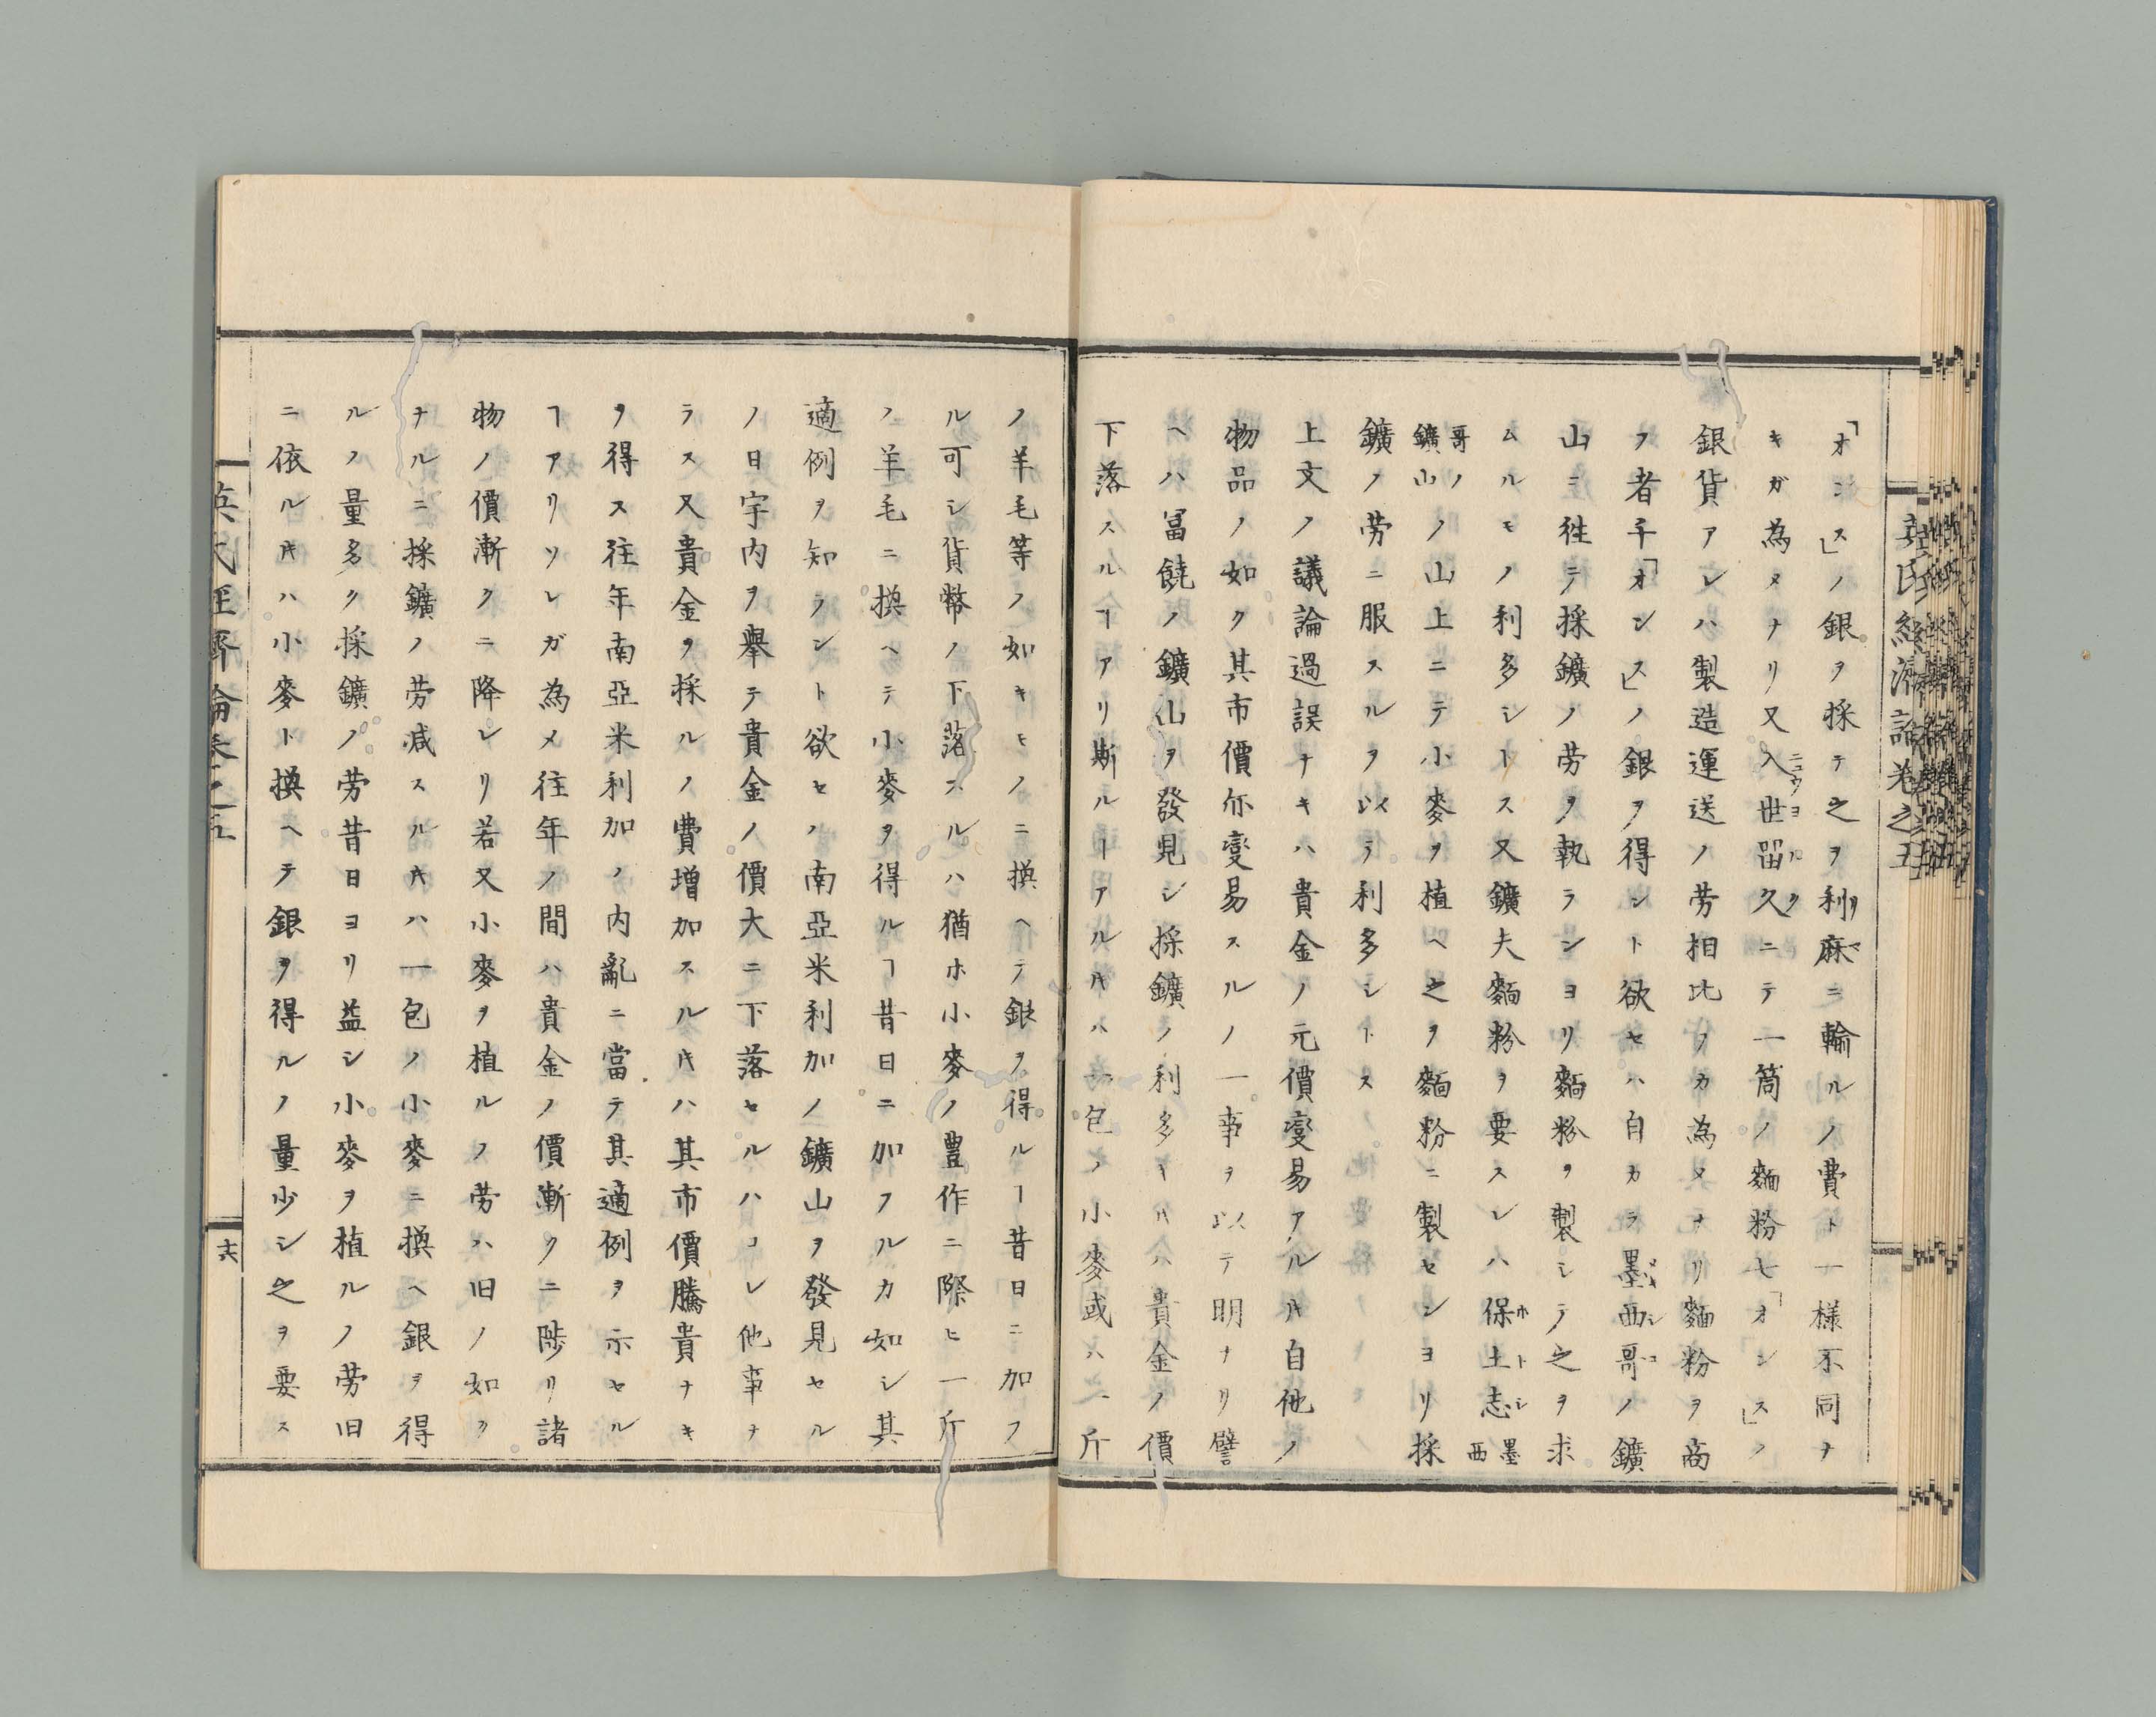 英氏経済論巻之五
「オンス」ノ銀ヲ採テ之ヲ利麻ニ輸ルノ費ト一様不同ナ
キガ為メナリ又入世留久ニテ一筒ノ麵粉七「オンス」ノ
銀貨アレハ製造運送ノ労相比フカ為メナリ麵粉ヲ商
フ者千「オンス」ノ銀ヲ得ント欲セハ自カラ墨西哥ノ鑛
山ニ徃テ採鑛ノ労ヲ執ランヨリ麵粉ヲ製シテ之ヲ求
ムルモノ利多シトス又鑛夫麵粉ヲ要スレハ保土志墨西
哥ノ鑛山ノ山上ニテ小麥ヲ植ヘ之ヲ麵粉ニ製センヨリ採
鑛ノ労ニ服スルヲ以テ利多シトス
上文ノ議論過誤ナキハ貴金ノ元價變易アル𪜈自他ノ
物品ノ如ク其市價亦變易スルノ一事ヲ以テ明ナリ譬
ヘハ冨饒ノ鑛山ヲ發見シ採鑛ノ利多キ𪜈ハ貴金ノ價
下落スルヿアリ斯ルヿアル𪜈ハ一包ノ小麥或ハ一斤
ノ羊毛等ノ如キモノニ換ヘテ銀ヲ得ルヿ昔日ニ加フ
ル可シ貨幣ノ下落スルハ猶ホ小麥ノ豊作ニ際ヒ一斤
ノ羊毛ニ換ヘテ小麥ヲ得ルヿ昔日ニ加フルカ如シ其
適例ヲ知ラント欲セハ南亞米利加ノ鑛山ヲ發見セル
ノ日宇内ヲ舉テ貴金ノ價大ニ下落セルハコレ他事ナ
ラス又貴金ヲ採ルノ費増加スル𪜈ハ其市價騰貴ナキ
ヲ得ス往年南亞米利加ノ内亂ニ當テ其適例ヲ示セル
ヿアリソレガ為メ往年ノ間ハ貴金ノ價漸クニ陟リ諸
物ノ價漸クニ降レリ若又小麥ヲ植ルノ労ハ旧ノ如ク
ナルニ採鑛ノ労減スル𪜈ハ一包ノ小麥ニ換ヘ銀ヲ得
ルノ量多ク採鑛ノ労昔日ヨリ益シ小麥ヲ植ルノ労旧
ニ依ル𪜈ハ小麥ト換ヘテ銀ヲ得ルノ量少シ之ヲ要ス
英氏経済論巻之五
十六